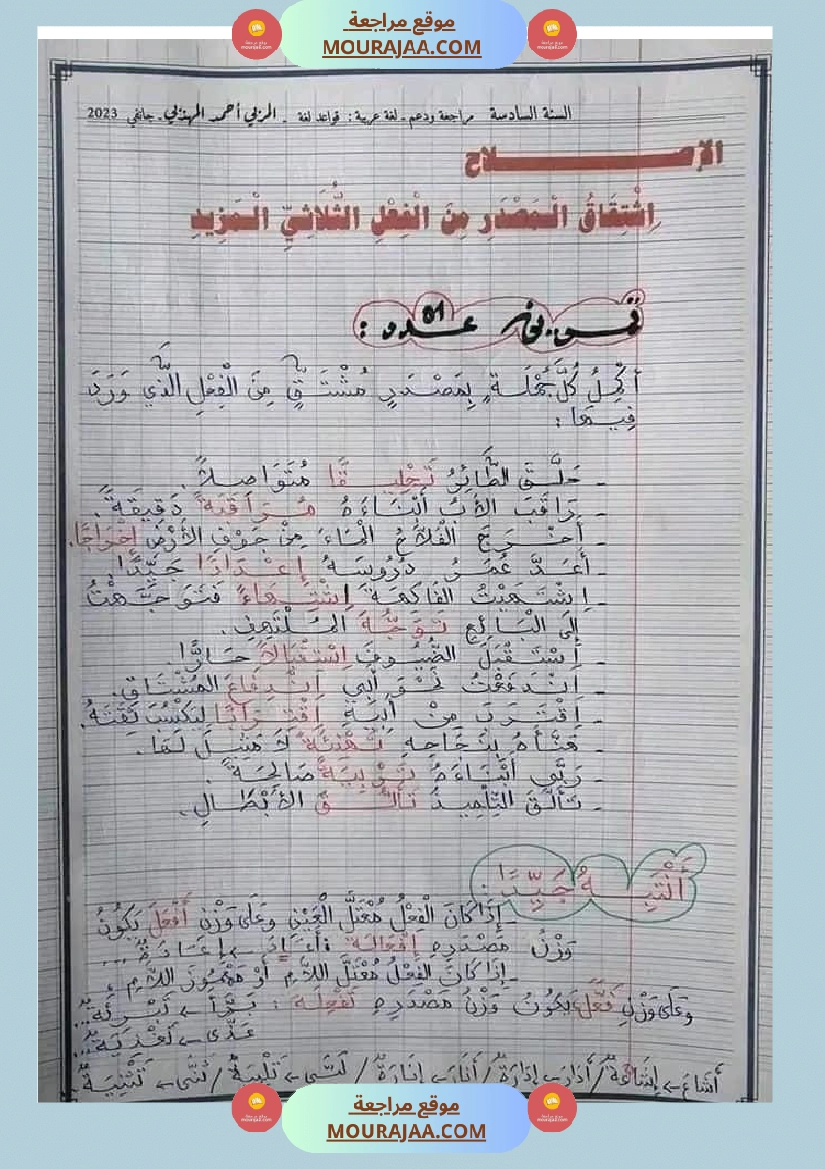 موقع مراجعة
MOURAJAA.COM
السنة السادسة مراجعة ودعم - لغة عربية: قواعد لغة - المربي أحمد المهذبي - جانفي 2023
الإصـــــلاح
اِشْتِقَاقُ الْمَصْدَرِ مِنَ الْفِعْلِ الثُّلَاثِيِّ الْمَزِيدِ
تمـرين عـدد 01 :
أُكْمِلُ كُلَّ جُمْلَةٍ بِمَصْدَرٍ مُشْتَقٍّ مِنَ الْفِعْلِ الَّذِي وَرَدَ
فِيهَا :
- حَلَّقَ الطَّائِرُ تَحْلِيقًا مُتَوَاصِلاً.
- رَاقَبَ الأَبُ أَبْنَاءَهُ مُرَاقَبَةً دَقِيقَةً.
- أَخْرَجَ الْفَلاَّحُ الْمَاءَ مِنْ جَوْفِ الأَرْضِ إِخْرَاجًا.
- أَعَدَّ عُمَرُ دُرُوسَهُ إِعْدَادًا جَيِّدًا.
- اِشْتَهَيْتُ الْفَاكِهَةَ اِشْتِهَاءً فَتَوَجَّهْتُ
إِلَى الْبَائِعِ تَوَجُّهَ الْمُلْتَهِفِ.
- اِسْتَقْبَلَ الضُّيُوفَ اِسْتِقْبَالاً حَارًّا.
- اِنْدَفَعْتُ نَحْوَ أَبِي اِنْدِفَاعَ الْمُشْتَاقِ.
- اِقْتَرَبَ مِنْ أَبِيهِ اِقْتِرَابًا لِيَكْسِبَ ثِقَتَهُ.
- هَنَّأَهُ بِنَجَاحِهِ تَهْنِئَةً لاَ مَثِيلَ لَهَا.
- رَبَّى أَبْنَاءَهُ تَرْبِيَةً صَالِحَةً.
- تَأَلَّقَ التِّلْمِيذُ تَأَلُّقَ الأَبْطَالِ.
أَنْتَبِـهُ جَيِّدًا :
- إِذَا كَانَ الْفِعْلُ مُعْتَلَّ الْعَيْنِ وَعَلَى وَزْنِ أَفْعَلَ يَكُونُ
وَزْنُ مَصْدَرِهِ إِفْعَالَة : أَعَادَ ← إِعَادَةٌ ...
- إِذَا كَانَ الْفِعْلُ مُعْتَلَّ اللاَّمِ أَوْ مَهْمُوزَ اللاَّمِ
وَعَلَى وَزْنِ فَعَّلَ يَكُونُ وَزْنُ مَصْدَرِهِ تَفْعِلَة : بَرَّأَ ← تَبْرِئَةٌ...
عَدَّى ← تَعْدِيَةٌ...
أَشَاعَ ← إِشَاعَةٌ / أَدَارَ ← إِدَارَةٌ / أَنَارَ ← إِنَارَةٌ / لَبَّى ← تَلْبِيَةٌ / ثَنَّى ← تَثْنِيَةٌ
موقع مراجعة
MOURAJAA.COM